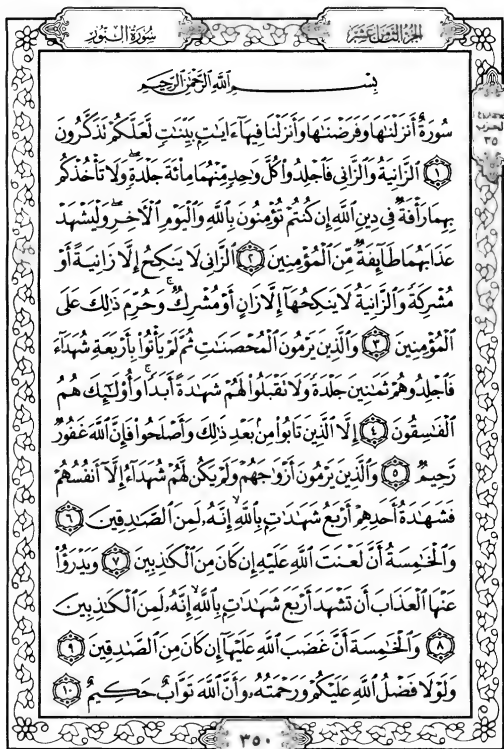 سُورَةُ النُّورِ
الجُزْءُ الثَّامِنَ عَشَرَ
بِسْمِ اللَّهِ الرَّحْمَٰنِ الرَّحِيمِ
سُورَةٌ أَنزَلْنَٰهَا وَفَرَضْنَٰهَا وَأَنزَلْنَا فِيهَآ ءَايَٰتٍۭ بَيِّنَٰتٍ لَّعَلَّكُمْ تَذَكَّرُونَ
﴿١﴾ ٱلزَّانِيَةُ وَٱلزَّانِى فَٱجْلِدُوا۟ كُلَّ وَٰحِدٍ مِّنْهُمَا مِا۟ئَةَ جَلْدَةٍ ۖ وَلَا تَأْخُذْكُم
بِهِمَا رَأْفَةٌ فِى دِينِ ٱللَّهِ إِن كُنتُمْ تُؤْمِنُونَ بِٱللَّهِ وَٱلْيَوْمِ ٱلْءَاخِرِ ۖ وَلْيَشْهَدْ
عَذَابَهُمَا طَآئِفَةٌ مِّنَ ٱلْمُؤْمِنِينَ ﴿٢﴾ ٱلزَّانِى لَا يَنكِحُ إِلَّا زَانِيَةً أَوْ
مُشْرِكَةً وَٱلزَّانِيَةُ لَا يَنكِحُهَآ إِلَّا زَانٍ أَوْ مُشْرِكٌ ۚ وَحُرِّمَ ذَٰلِكَ عَلَى
ٱلْمُؤْمِنِينَ ﴿٣﴾ وَٱلَّذِينَ يَرْمُونَ ٱلْمُحْصَنَٰتِ ثُمَّ لَمْ يَأْتُوا۟ بِأَرْبَعَةِ شُهَدَآءَ
فَٱجْلِدُوهُمْ ثَمَٰنِينَ جَلْدَةً وَلَا تَقْبَلُوا۟ لَهُمْ شَهَٰدَةً أَبَدًا ۚ وَأُو۟لَٰٓئِكَ هُمُ
ٱلْفَٰسِقُونَ ﴿٤﴾ إِلَّا ٱلَّذِينَ تَابُوا۟ مِنۢ بَعْدِ ذَٰلِكَ وَأَصْلَحُوا۟ فَإِنَّ ٱللَّهَ غَفُورٌ
رَّحِيمٌ ﴿٥﴾ وَٱلَّذِينَ يَرْمُونَ أَزْوَٰجَهُمْ وَلَمْ يَكُن لَّهُمْ شُهَدَآءُ إِلَّآ أَنفُسُهُمْ
فَشَهَٰدَةُ أَحَدِهِمْ أَرْبَعُ شَهَٰدَٰتٍۭ بِٱللَّهِ ۙ إِنَّهُۥ لَمِنَ ٱلصَّٰدِقِينَ ﴿٦﴾
وَٱلْخَٰمِسَةُ أَنَّ لَعْنَتَ ٱللَّهِ عَلَيْهِ إِن كَانَ مِنَ ٱلْكَٰذِبِينَ ﴿٧﴾ وَيَدْرَؤُا۟
عَنْهَا ٱلْعَذَابَ أَن تَشْهَدَ أَرْبَعَ شَهَٰدَٰتٍۭ بِٱللَّهِ ۙ إِنَّهُۥ لَمِنَ ٱلْكَٰذِبِينَ
﴿٨﴾ وَٱلْخَٰمِسَةَ أَنَّ غَضَبَ ٱللَّهِ عَلَيْهَآ إِن كَانَ مِنَ ٱلصَّٰدِقِينَ ﴿٩﴾
وَلَوْلَا فَضْلُ ٱللَّهِ عَلَيْكُمْ وَرَحْمَتُهُۥ وَأَنَّ ٱللَّهَ تَوَّابٌ حَكِيمٌ ﴿١٠﴾
٣٥٠